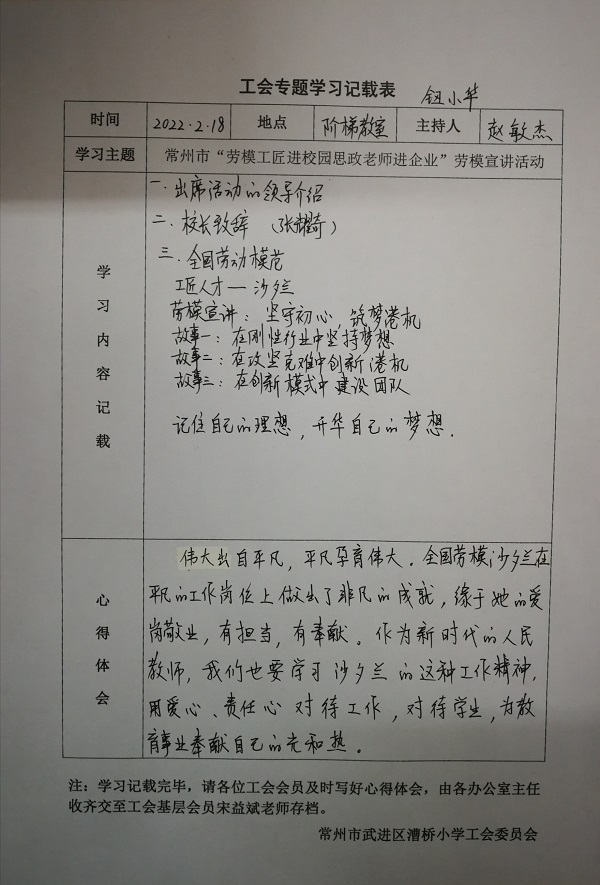 工会专题学习记载表
钮小华
时间 2022.2.18 地点 阶梯教室 主持人 赵敏杰
学习主题 常州市“劳模工匠进校园思政老师进企业”劳模宣讲活动
学习内容记载
一.出席活动的领导介绍
二.校长致辞 (张耀奇)
三.全国劳动模范
工匠人才—沙夕兰
劳模宣讲:坚守初心,筑梦港机
故事一:在刚性行业中坚持梦想
故事二:在攻坚克难中创新港机
故事三:在创新模式中建设团队
记住自己的理想,开华自己的梦想.
心得体会
伟大出自平凡,平凡孕育伟大.全国劳模沙夕兰在
平凡的工作岗位上做出了非凡的成就,缘于她的爱
岗敬业,有担当,有奉献.作为新时代的人民
教师,我们也要学习沙夕兰的这种工作精神,
用爱心、责任心对待工作,对待学生,为教
育事业奉献自己的光和热。
注:学习记载完毕,请各位工会会员及时写好心得体会,由各办公室主任
收齐交至工会基层会员宋益斌老师存档。
常州市武进区漕桥小学工会委员会